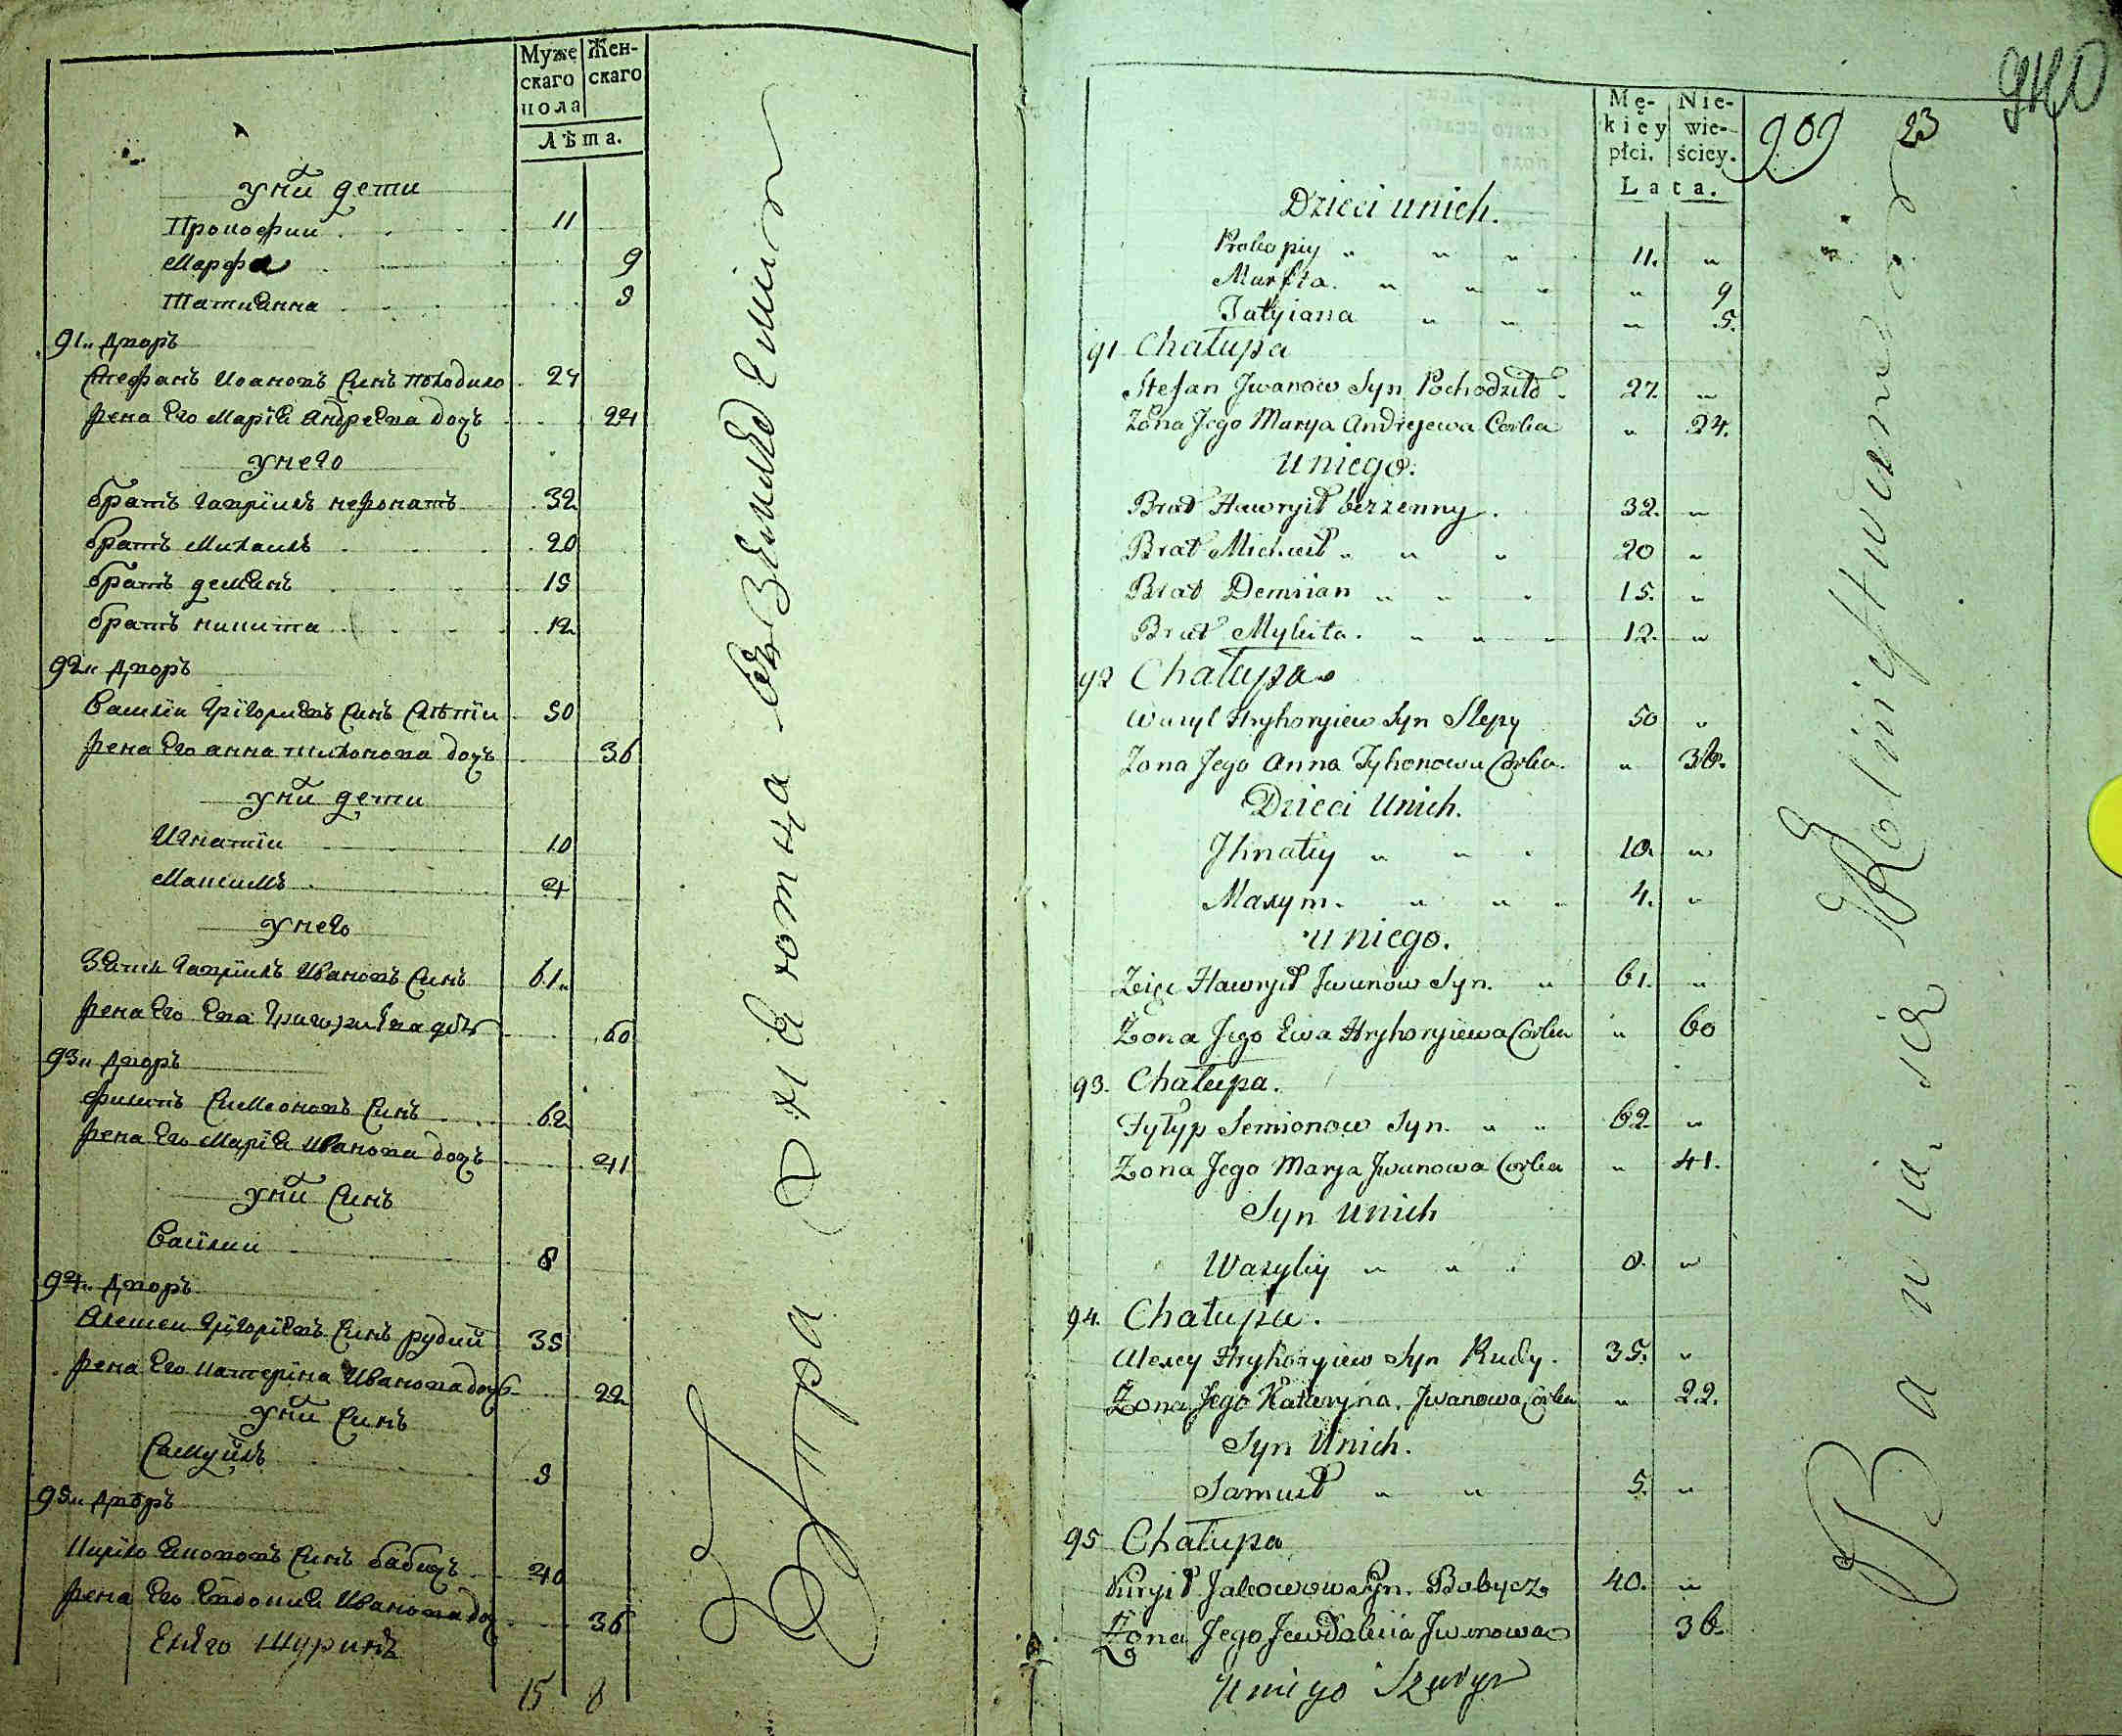 Муже Жен-
скаго скаго
пола
Лѣта.
уни дети
Прокофии 11
Марфа 9
Татианна 5
91 Дворъ
Стефанъ Ивановъ Синъ Походило 27
жена Его Марія Андреева дочъ 24
унего
братъ Гаврiилъ неженатъ 32
братъ Михаилъ 20
братъ демянъ 15
братъ никита 12
92 Дворъ
Василiи Григориевъ Синъ Слѣпiи 50
жена Его анна тихонова дочъ 36
уни дети
Игнатiи 10
Максимъ 4
унего
Зять Гаврiилъ Ивановъ Синъ 61
жена Его Ева Григориева дочъ 60
93 Дворъ
Филипъ Симеоновъ Синъ 62
жена Его Марiя Иванова дочъ 41
уни Синъ
Василии 8
94 Дворъ
Алексеи Григорiевъ Синъ рудий 35
жена Его Катерiна Иванова дочъ 22
уни Синъ
Самуiлъ 5
95 Дворъ
Кирiло Якововъ Синъ бабичъ 40
жена Его Евдокия Иванова доч 36
Его шуринъ
15 8
Mę- Nie-
kiey wie-
płci. ściey.
Lata.
909 23
940
Dzieci unich.
Prokopiy 11.
Marfta. 9
Tatyiana 5.
91 Chałupa
Stefan Jwanow Syn Pochodziło 27.
Zona Jego Marya Andrejewa Corka 24.
Uniego.
Brat Hawrył bezzenny. 32.
Brat Michaił 20
Brat Demian 15.
Brat Mykita. 12.
92 Chałupa
Wasyl Hryhoryiew Syn Slepy 50
Zona Jego Anna Tyhonowa Corka. 36.
Dzieci Unich.
Jhnatiy 10.
Maxym. 4.
Uniego.
Zięc Hawrył Jwanow Syn. 61.
Zona Jego Ewa Hryhoryiewa Corka 60
93. Chałupa.
Fyłyp Semionow Syn. 62
Zona Jego Marya Jwanowa Corka 41.
Syn Unich
Wasyliy 8.
94. Chałupa.
Alexey Hryhoryiew Syn Rudy. 35.
Zona Jego Kateryna Jwanowa Corka 22.
Syn Unich.
Samuił 5.
95 Chałupa
Kurył Jakowow Syn. Babycz 40.
Zona Jego Jewdokiia Jwanowa 36.
Uniego Szwagr